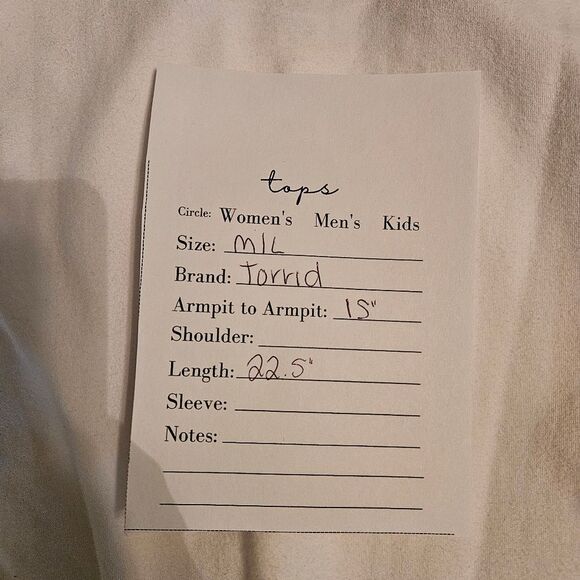 tops
Circle: Women's Men's Kids
Size: M/L
Brand: Torrid
Armpit to Armpit: 15"
Shoulder:
Length: 22.5"
Sleeve:
Notes: